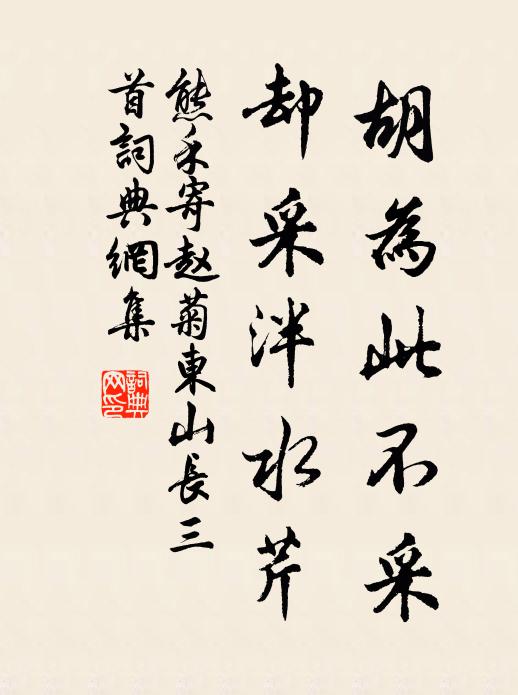 胡為此不采
却采泮水芹
熊禾寄赵菊東山長三
首詞典網集
詞典網印